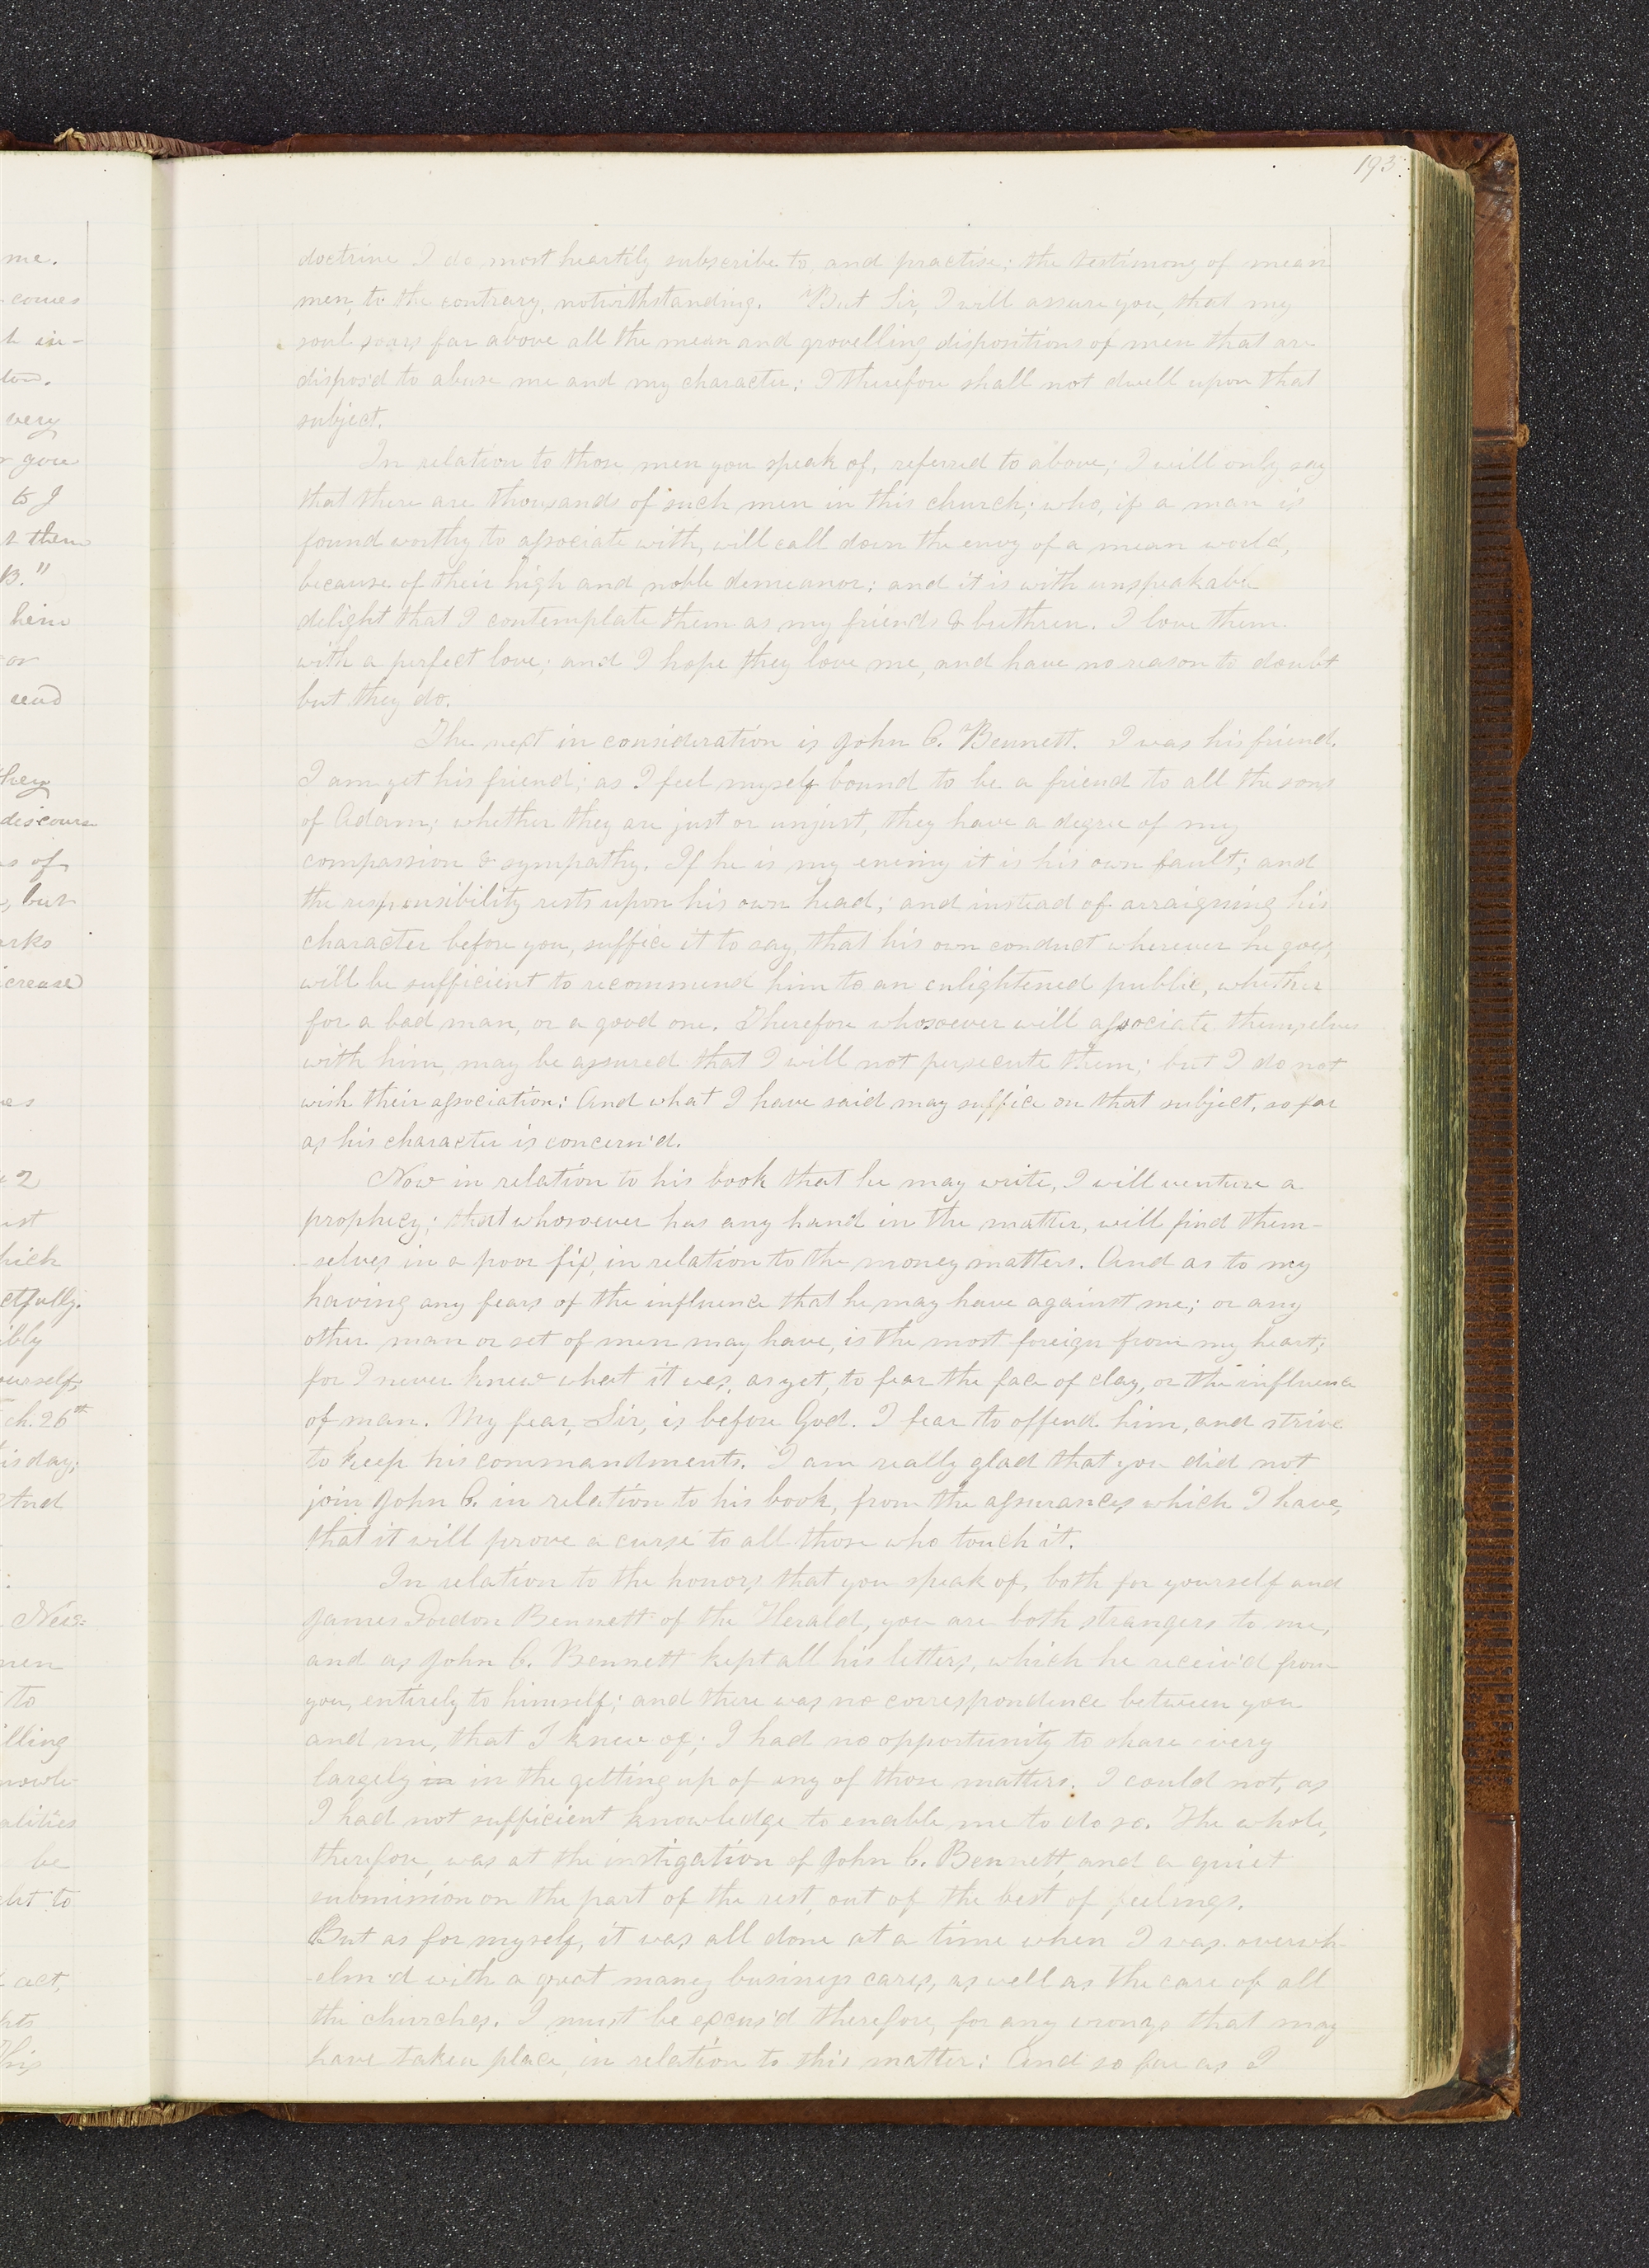 193.
me.
comes
very
you
to J
them
B."
him
or
they
discourse
s of
, but
crease
2
hich
ctfully.
ibly
ourself,
ch. 26th
is day;
And
New=
men
to
illing
alities
be
act,
doctrine I do most heartily subscribe to, and practise; the testimony of mean
men, to the contrary, notwithstanding. But Sir, I will assure you, that my
soul soars far above all the mean and grovelling dispositions of men that are
dispos'd to abuse me and my character; I therefore shall not dwell upon that
subject.
In relation to those men you speak of, referred to above; I will only say
that there are thousands of such men in this church; who, if a man is
found worthy to associate with, will call down the envy of a mean world,
because of their high and noble demeanor; and it is with unspeakable
delight that I contemplate them as my friends & brethren. I love them
with a perfect love; and I hope they love me, and have no reason to doubt
but they do.
The next in consideration is John C. Bennett. I was his friend.
I am yet his friend; as I feel myself bound to be a friend to all the sons
of Adam; whether they are just or unjust, they have a degree of my
compassion & sympathy. If he is my enemy it is his own fault; and
the responsibility rests upon his own head; and instead of arraigning his
character before you, suffice it to say, that his own conduct wherever he goes,
will be sufficient to recommend him to an enlightened public, whether
for a bad man, or a good one. Therefore whosoever will associate themselves
with him, may be assured that I will not persecute them; but I do not
wish their association: And what I have said may suffice on that subject, so far
as his character is concern'd.
Now in relation to his book that he may write, I will venture a
prophecy; that whosoever has any hand in the matter, will find them-
-selves in a poor fix, in relation to the money matters. And as to my
having any fears of the influence that he may have against me; or any
other man or set of men may have, is the most foreign from my heart;
for I never knew what it was, as yet, to fear the face of clay, or the influence
of man. My fear, Sir, is before God. I fear to offend him, and strive
to keep his commandments. I am really glad that you did not
join John C. in relation to his book, from the assurances which I have,
that it will prove a curse to all those who touch it.
In relation to the honors, that you speak of, both for yourself and
James Gordon Bennett of the Herald, you are both strangers to me,
and as John C. Bennett kept all his letters, which he receiv'd from
you, entirely to himself; and there was no correspondence between you
and me, that I knew of; I had no opportunity to share very
largely in in the getting up of any of those matters. I could not, as
I had not sufficient knowledge to enable me to do so. The whole,
therefore, was at the instigation of John C. Bennett, and a quiet
submission on the part of the rest, out of the best of feelings.
But as for myself, it was all done at a time when I was overwh-
-elm'd with a great many business cares, as well as the care of all
the churches. I must be excus'd therefore, for any wrongs that may
have taken place, in relation to this matter: And so far as I